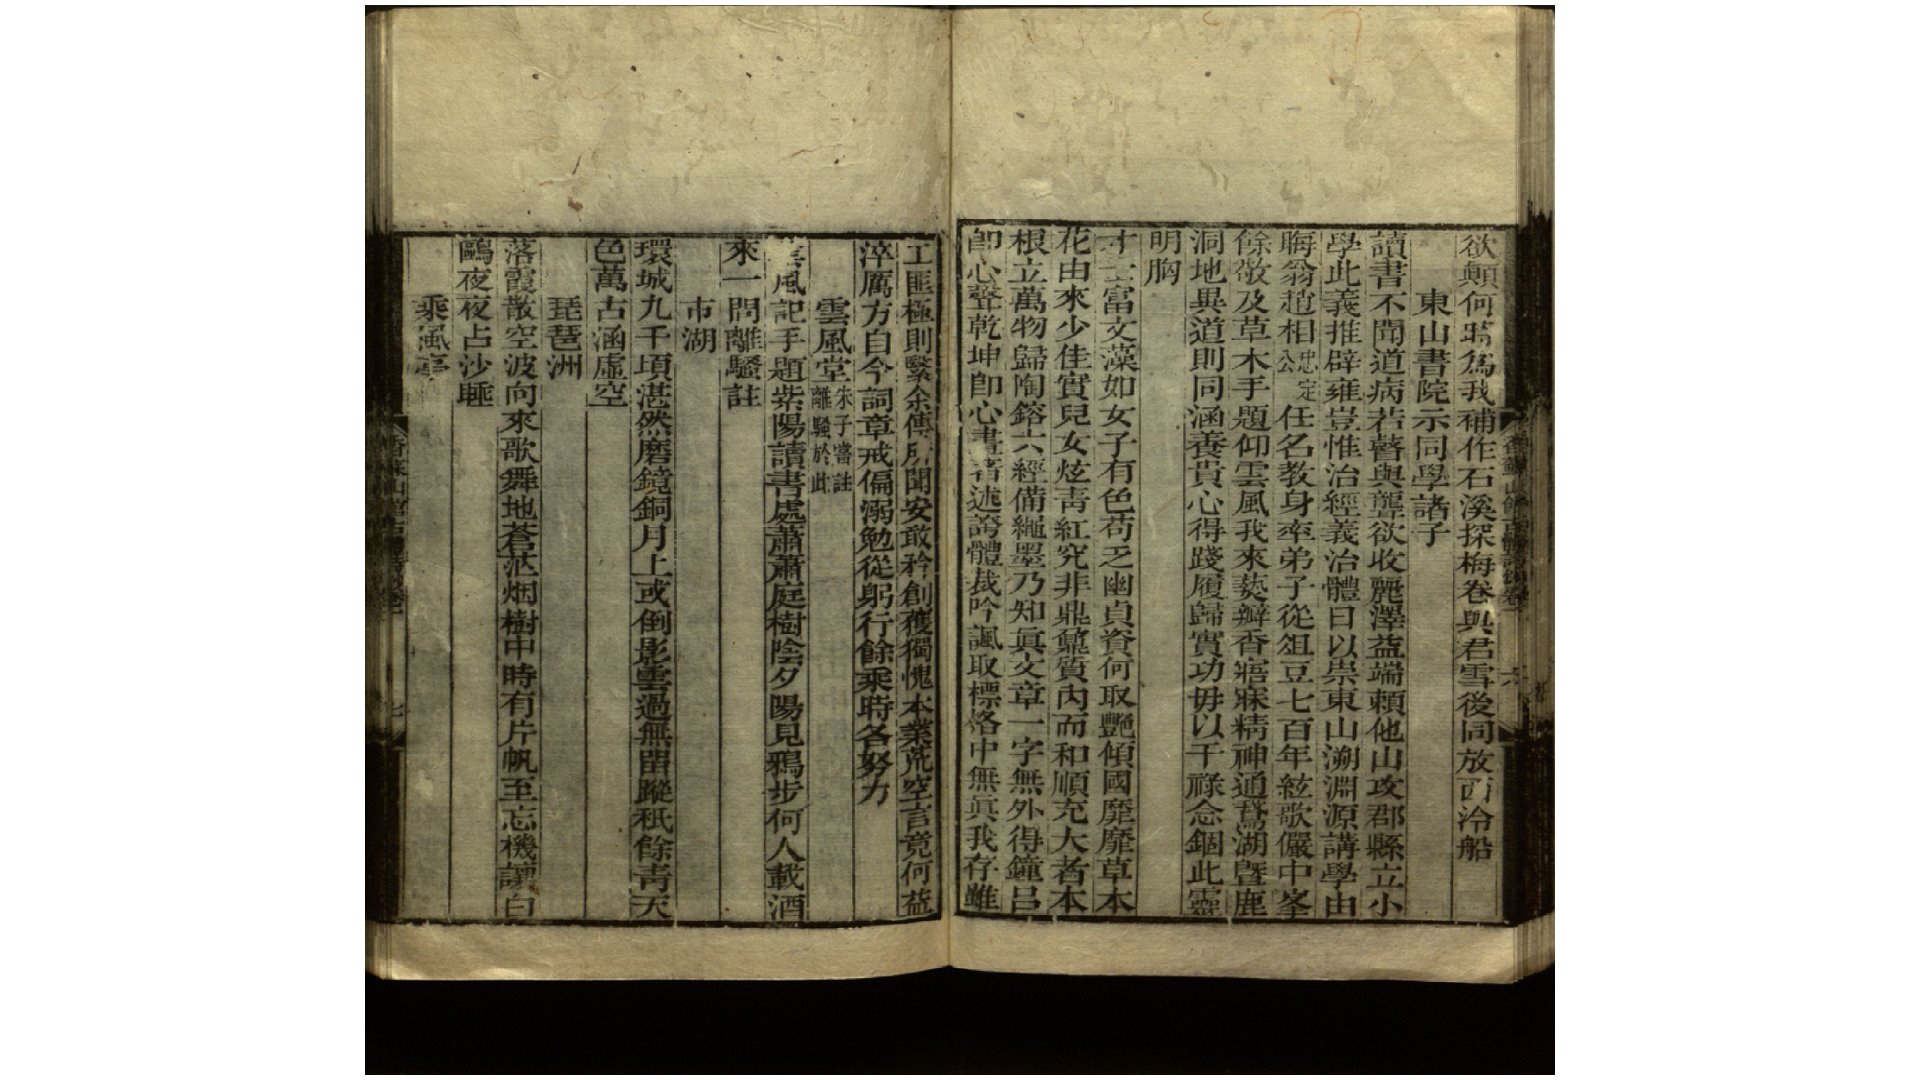 欲顛何時爲我補作石溪探梅卷與君雪後同放西泠船
東山書院示同學諸子
讀書不聞道病若瞽與聾欲收麗澤益端賴他山攻郡縣立小
學此義推辟雍豈惟治經義治體曰以崇東山溯淵源講學由
晦翁趙相忠定公任名教身率弟子從俎豆七百年絃歌儼中峯
餘敬及草木手題仰雲風我來爇瓣香寤寐精神通鵞湖曁鹿
洞地異道則同涵養貴心得踐履歸實功毋以干祿念錮此靈
明胸
才士富文藻如女子有色苟乏幽貞資何取艷傾國靡靡草木
花由來少佳實兒女炫青紅究非鼎鼐質内而和順充大者本
根立萬物歸陶鎔六經備繩墨乃知眞文章一字無外得鐘呂
卽心聲乾坤卽心畫著述誇體裁吟諷取標格中無眞我存雖
工匪極則緊余傳所聞安敢矜創獲獨愧本業荒空言竟何益
淬厲方自今詞章戒偏溺勉從躬行餘乘時各努力
雲風堂朱子嘗註離騷於此
雲風記手題紫陽讀書處蕭蕭庭樹陰夕陽見鴉步何人載酒
來一問離騷註
市湖
環城九千頃湛然磨鏡銅月上或倒影雲過無留蹤秖餘靑天
色萬古涵虛空
琵琶洲
落霞散空波向來歌舞地蒼茫烟樹中時有片帆至忘機讓白
鷗夜夜占沙睡
乘風亭